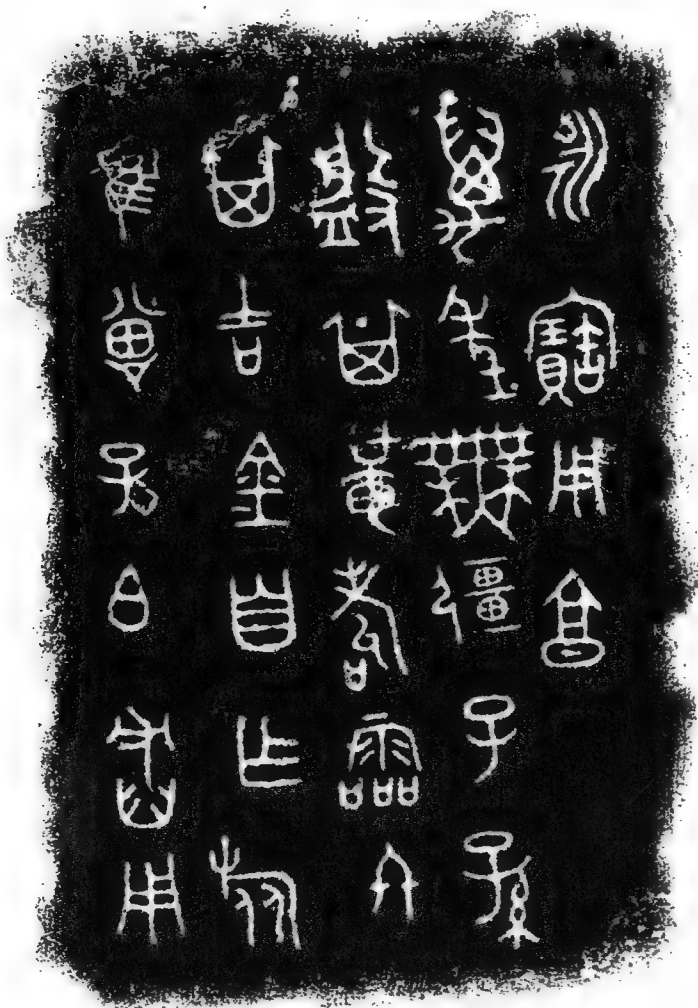 隹曾子白用
其吉金自乍旅
其黃耇霝冬
萬年無疆子孫
永寶用亯